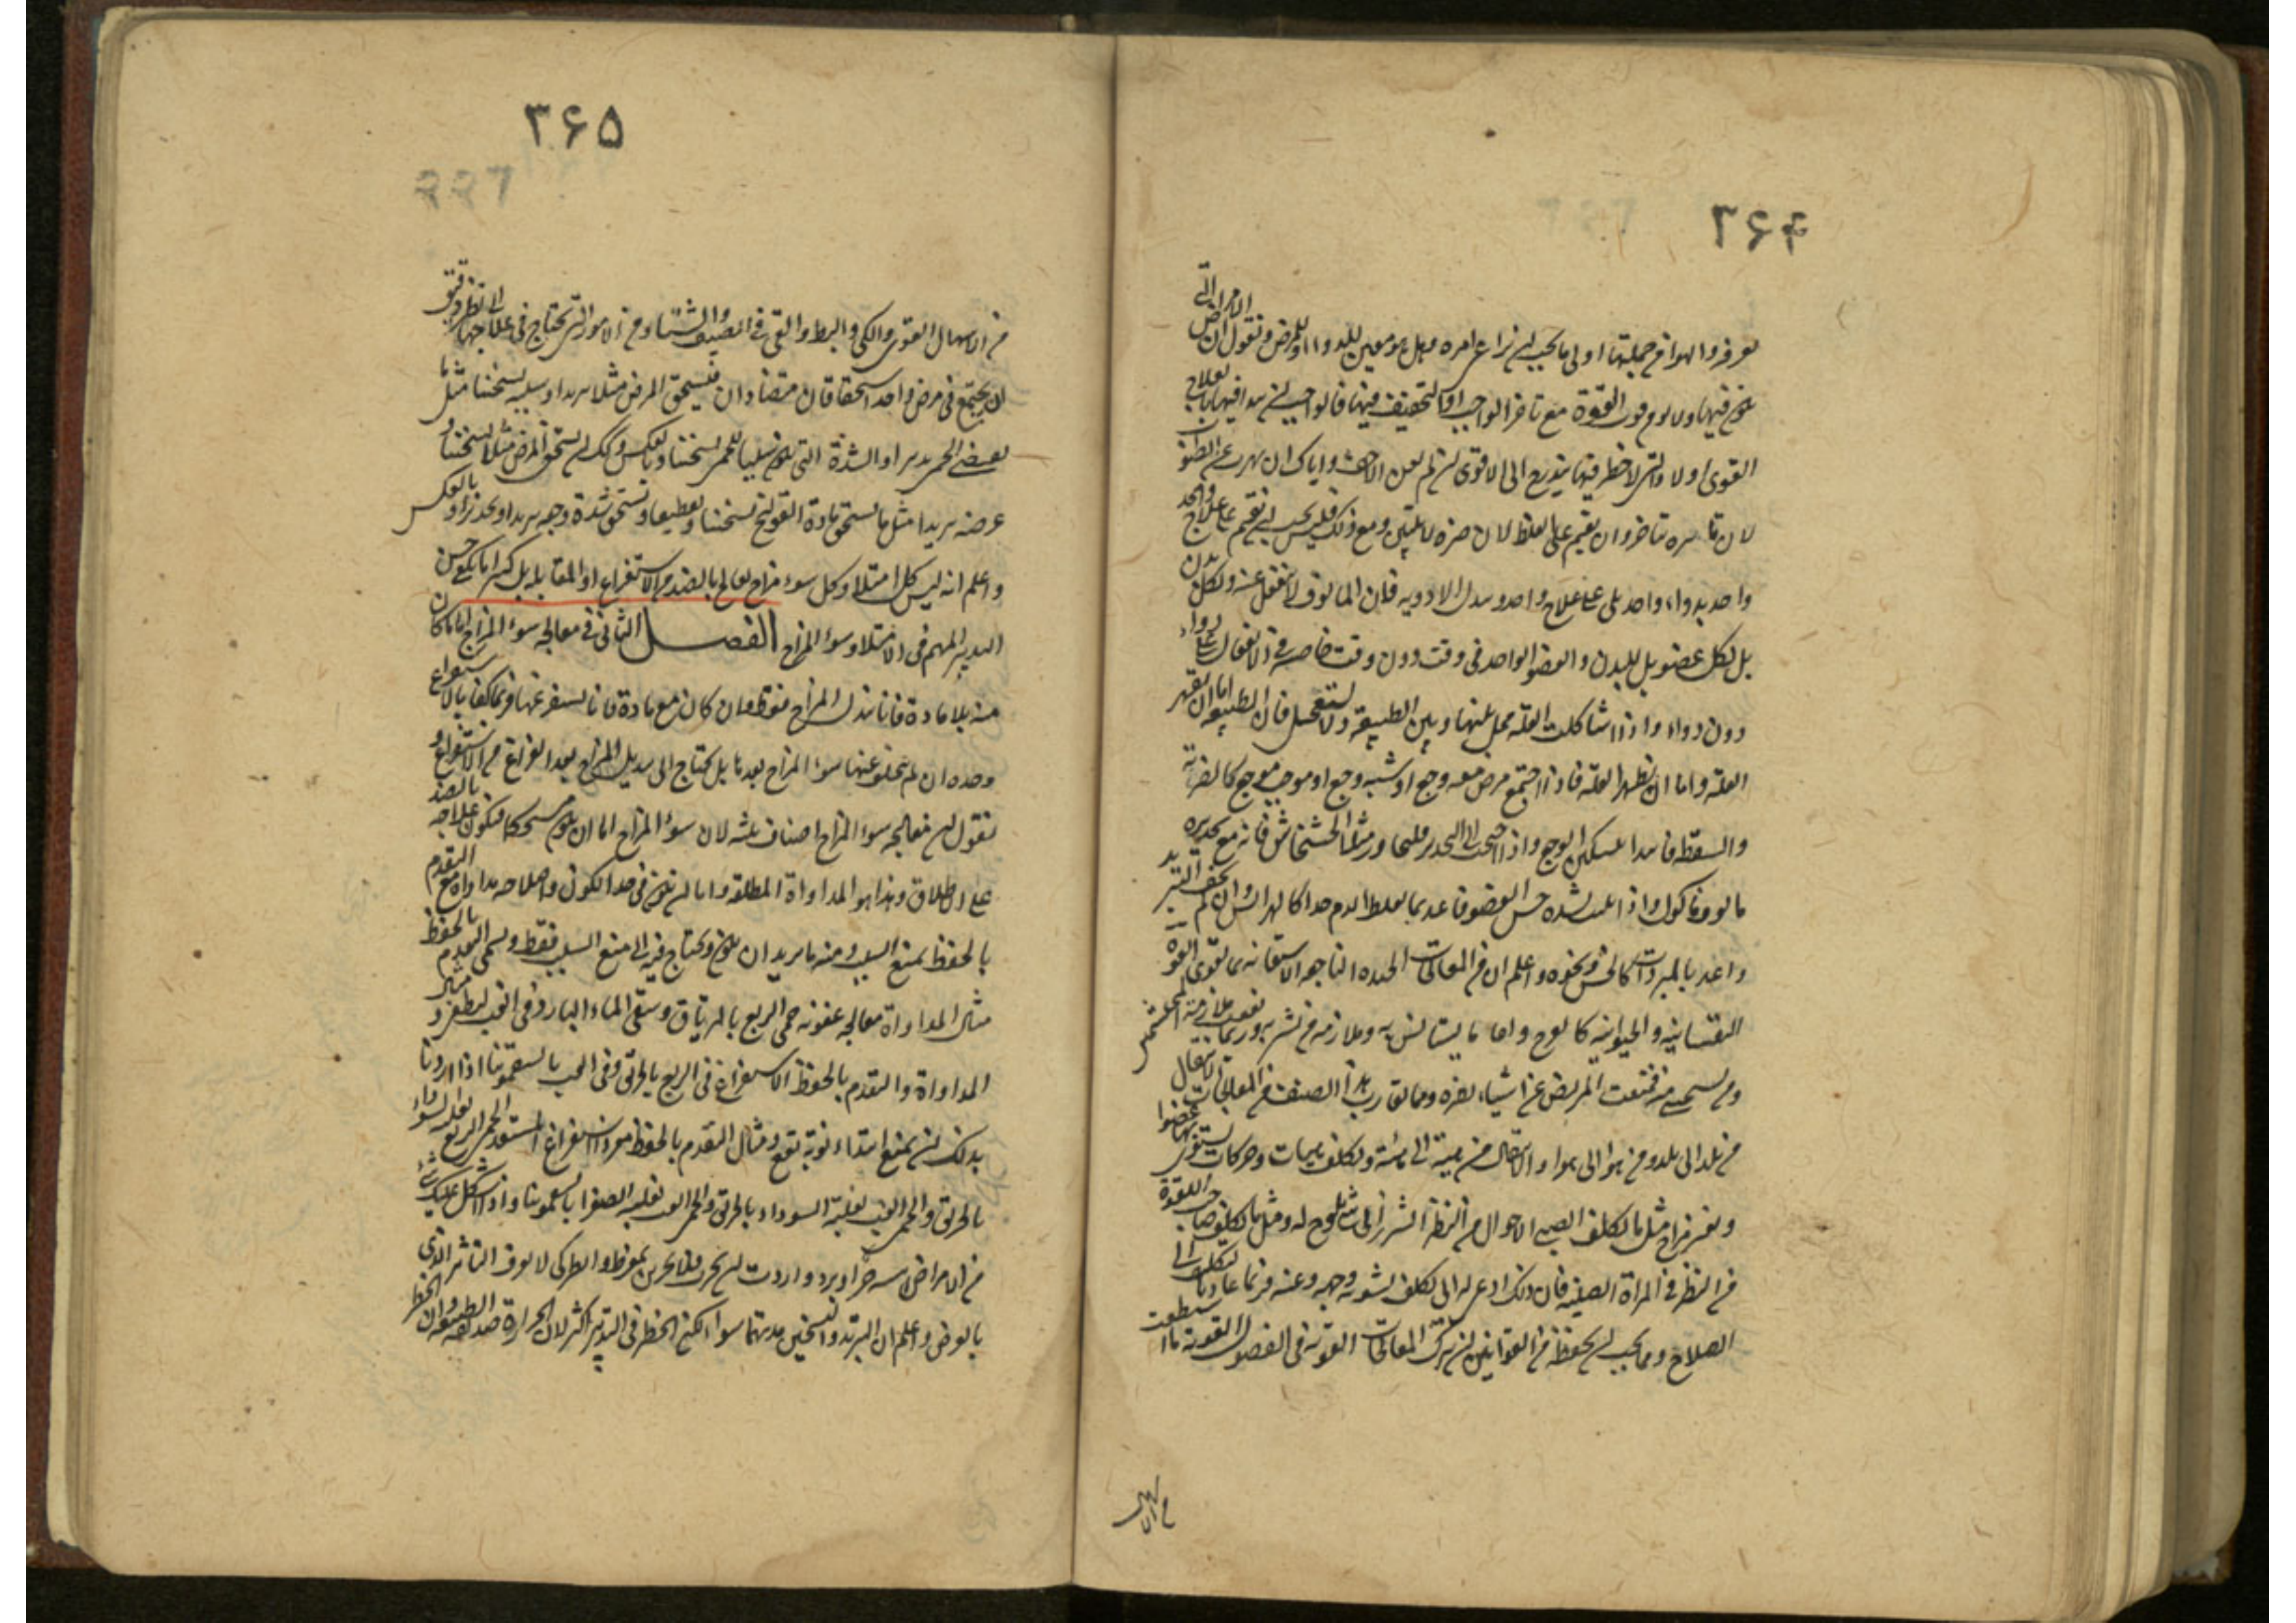 ۳۶۴
تعرفه والهوا من جملتها اولى ما يجب ان يراعى امره وهل هو معين للدوا او للمرض ونقول ان الامراض التى
تكون فيها ولا يومن فوت القوة مع تاخر الواجب او التخفيف فيها فالواجب ان يبدا فيها بالعلاج
القوى اولا والتى لا خطر فيها يتدرج الى الاقوى ان لم يغن الاخف واياك ان تهرب عن
لان تاثيره يتاخر وان تقيم على الغلط لان ضرره لا يتبين ومع ذلك فليس يجب ان تقيم على علاج واحد
واحد بدواء واحد بل علاج واحد وتبدل الادويه فان المالوف لا ينفعل عنه ولكل بدن
بل لكل عضو بل للبدن والعضو الواحد فى وقت دون وقت خاصية فى الانفعال عن دواء
دون دواء واذا اشكلت العلة فخل بينها وبين الطبيعة ولا تستعجل فان الطبيعة اما ان تقهر
العلة واما ان تظهر العلة فاذا اجتمع مرض معه وجع او شبه وجع او موجب وجع كالضربة
والسقطة فابدا بتسكين الوجع واذا احتجت الى التخدير فلا تجاوز مثل الخشخاش فانه مع تخديره
مالوف ماكول واذا بشدة حس العضو فاغذ بما يغلظ الدم جدا كالهرايس وان لم تخف التبريد
واغذ بالمبردات كالخس ونحوه واعلم ان من المعالجات الجيده الناجعه الاستعانه بما يقوى القوة
النفسانيه والحيوانيه كالفرح ولقاء ما يستانس به وملازمة من يسر به وربما نفعت ملازمة المحتشمين
ومن يستحى منه فمنعت المريض عن اشياء تضره ومما يقارب هذا الصنف من المعالجات الانتقال
من بلد الى بلد ومن هوا الى هوا والانتقال من هيئة الى هيئة وتكلف هيئات وحركات يستوى بها عضو
ومغير مزاج مثل ما يكلف الصبى الاحول من النظر الشزر الى شئ يلوح له ومثل ما يكلف صاحب اللقوة
من النظر فى المراة الصينية فان ذلك ادعى له الى تكلف تسوية وجهه وعينه وربما عاد بالتكلف الى
الصلاح ومما يجب ان تحفظه من القوانين ان تترك المعالجات القوية فى الفصول القوية ما استطعت
من الاسهال
۳۶۵
من الاسهال القوى والكى والبط والقى فى الصيف والشتاء ومن الامور التى تحتاج فى علاجها الى نظر دقيق
ان يجتمع فى مرض واحد استحقاقان متضادان فيستحق المرض مثلا تبريدا وسببه تسخينا مثل ما
تقتضى الحمى تبريدا والسدة التى تكون سببا للحمى تسخينا وبالعكس وكذلك ان يستحق المرض مثلا تسخينا و
عرضه تبريدا مثل ما تستحق مادة القولنج تسخينا وتقطيعا وتستحق شدة وجعه تبريدا وتخديرا وبالعكس
واعلم انه ليس كل امتلاء وكل سوء مزاج يعالج بالضد من الاستفراغ او المقابلة بل كثيرا ما يكفى حسن
التدبير المهم فى الامتلاء وسوء المزاج الفصـــل الثانى فى معالجة سوء المزاج اما ما كان
منه بلا مادة فانا نبدل المزاج فقط وان كان مع مادة فانا نستفرغها وربما كفانا الاستفراغ
وحده ان لم يتخلف عنها سوء المزاج بعد بل يحتاج الى تبديل المزاج بعد الفراغ من الاستفراغ و
نقول ان معالجة سوء المزاج اصناف ثلثة لان سوء المزاج اما ان يكون مستحكما فيكون علاجه بالضد
على الاطلاق وهذا هو المداواة المطلقة واما ان يكون فى حد الكون واصلاحه مداواة مع التقدم
بالحفظ بمنع السبب ومنه ما يريد ان يكون ويحتاج فيه الى منع السبب فقط ويسمى التقدم بالحفظ
مثال المداواة معالجة عفونة حمى الربع بالترياق وسقى الماء البارد فى الغب ليطفى ومثال
المداواة والتقدم بالحفظ الاستفراغ فى الربع بالخربق وفى الغب بالسقمونيا اذا اردنا
بذلك ان نمنع ابتداء نوبة تقع ومثال التقدم بالحفظ مفردا استفراغ المستعد لحمى الربع لغلبة السوداء
بالخربق والحمى الغب لغلبة الصفرا بالسقمونيا واذا اشكل عليك شئ
من الامراض سببه حر او برد واردت ان تجرب فلا تجربن بمفرط وانظر كى لا يغرك التاثير الذى
بالعرض واعلم ان التبريد والتسخين مدتهما سواء لكن الخطر فى التبريد اكثر لان الحرارة صديقة الطبيعة وان الخطر